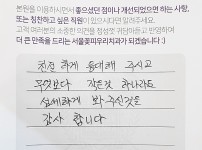 본원을 이용하시면서 좋으셨던 점이나 개선되었으면 하는 사항,
또는 칭찬하고 싶은 직원이 있으시다면 알려주세요.
고객 여러분의 소중한 의견을 점검껏 귀담아듣고 반영하여
더 큰 만족을 드리는 서울꽃피우리치과가 되겠습니다 :)
친절 하게 응대해 주시고
무엇보다 작은것 하나라도
섬세하게 봐 주신것은
감사 합니다